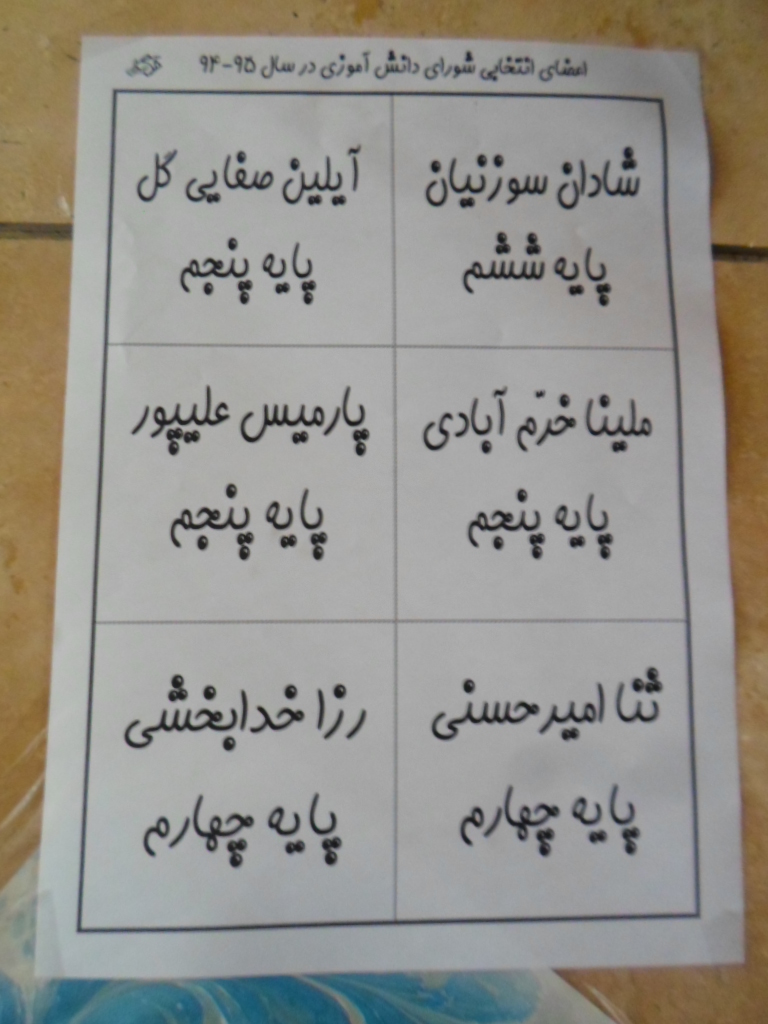 اعضای انتخابی شورای دانش آموزی در سال ۹۵-۹۴
شادان سوزنیان
پایه ششم
آیلین صفایی گل
پایه پنجم
ملینا خرّم آبادی
پایه پنجم
پارمیس علیپور
پایه پنجم
ثنا امیرحسنی
پایه چهارم
رزا خدابخشی
پایه چهارم